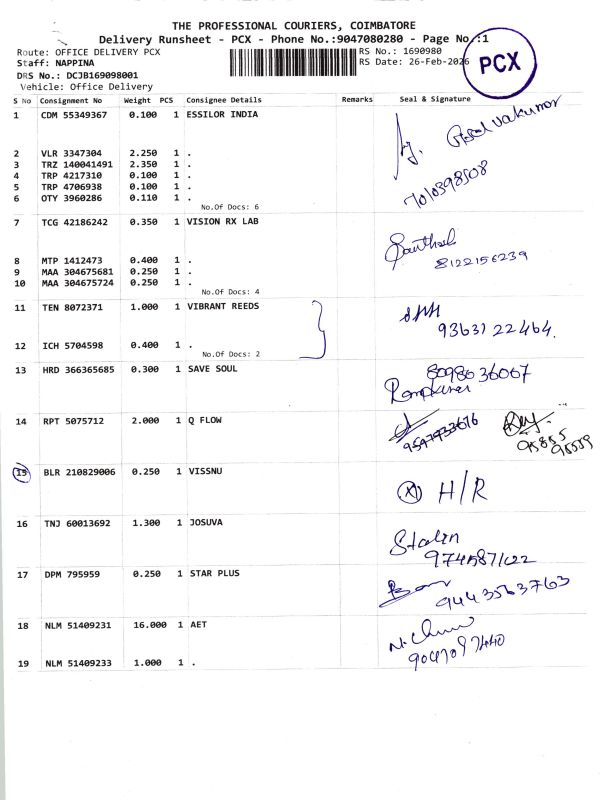 THE PROFESSIONAL COURIERS, COIMBATORE
Delivery Runsheet - PCX - Phone No.:9047080280 - Page No.:1
Route: OFFICE DELIVERY PCX RS No.: 1690980
Staff: NAPPINA RS Date: 26-Feb-2026
PCX
DRS No.: DCJB169098001
Vehicle: Office Delivery
S No Consignment No Weight PCS Consignee Details Remarks Seal & Signature
1 CDM 55349367 0.100 1 ESSILOR INDIA
2 VLR 3347304 2.250 1 .
3 TRZ 140041491 2.350 1 .
4 TRP 4217310 0.100 1 .
5 TRP 4706938 0.100 1 .
6 OTY 3960286 0.110 1 .
7010398508
No.Of Docs: 6
7 TCG 42186242 0.350 1 VISION RX LAB
8 MTP 1412473 0.400 1 . 8122156239
9 MAA 304675681 0.250 1 .
10 MAA 304675724 0.250 1 .
No.Of Docs: 4
11 TEN 8072371 1.000 1 VIBRANT REEDS
9363122464.
12 ICH 5704598 0.400 1 .
No.Of Docs: 2
13 HRD 366365685 0.300 1 SAVE SOUL 8098036067
14 RPT 5075712 2.000 1 Q FLOW
95855
95559
15 BLR 210829006 0.250 1 VISSNU
(X) H/R
16 TNJ 60013692 1.300 1 JOSUVA
Stalin
17 DPM 795959 0.250 1 STAR PLUS
9443563763
18 NLM 51409231 16.000 1 AET
19 NLM 51409233 1.000 1 .